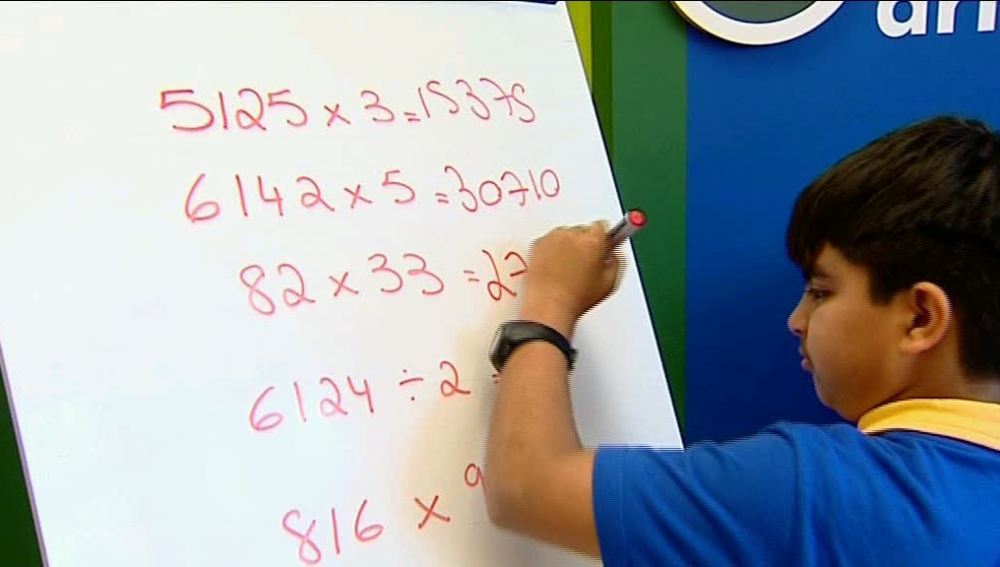 5125 × 3 = 15375
6142 × 5 = 30710
82 × 33 = 27
6124 ÷ 2
816 × 9